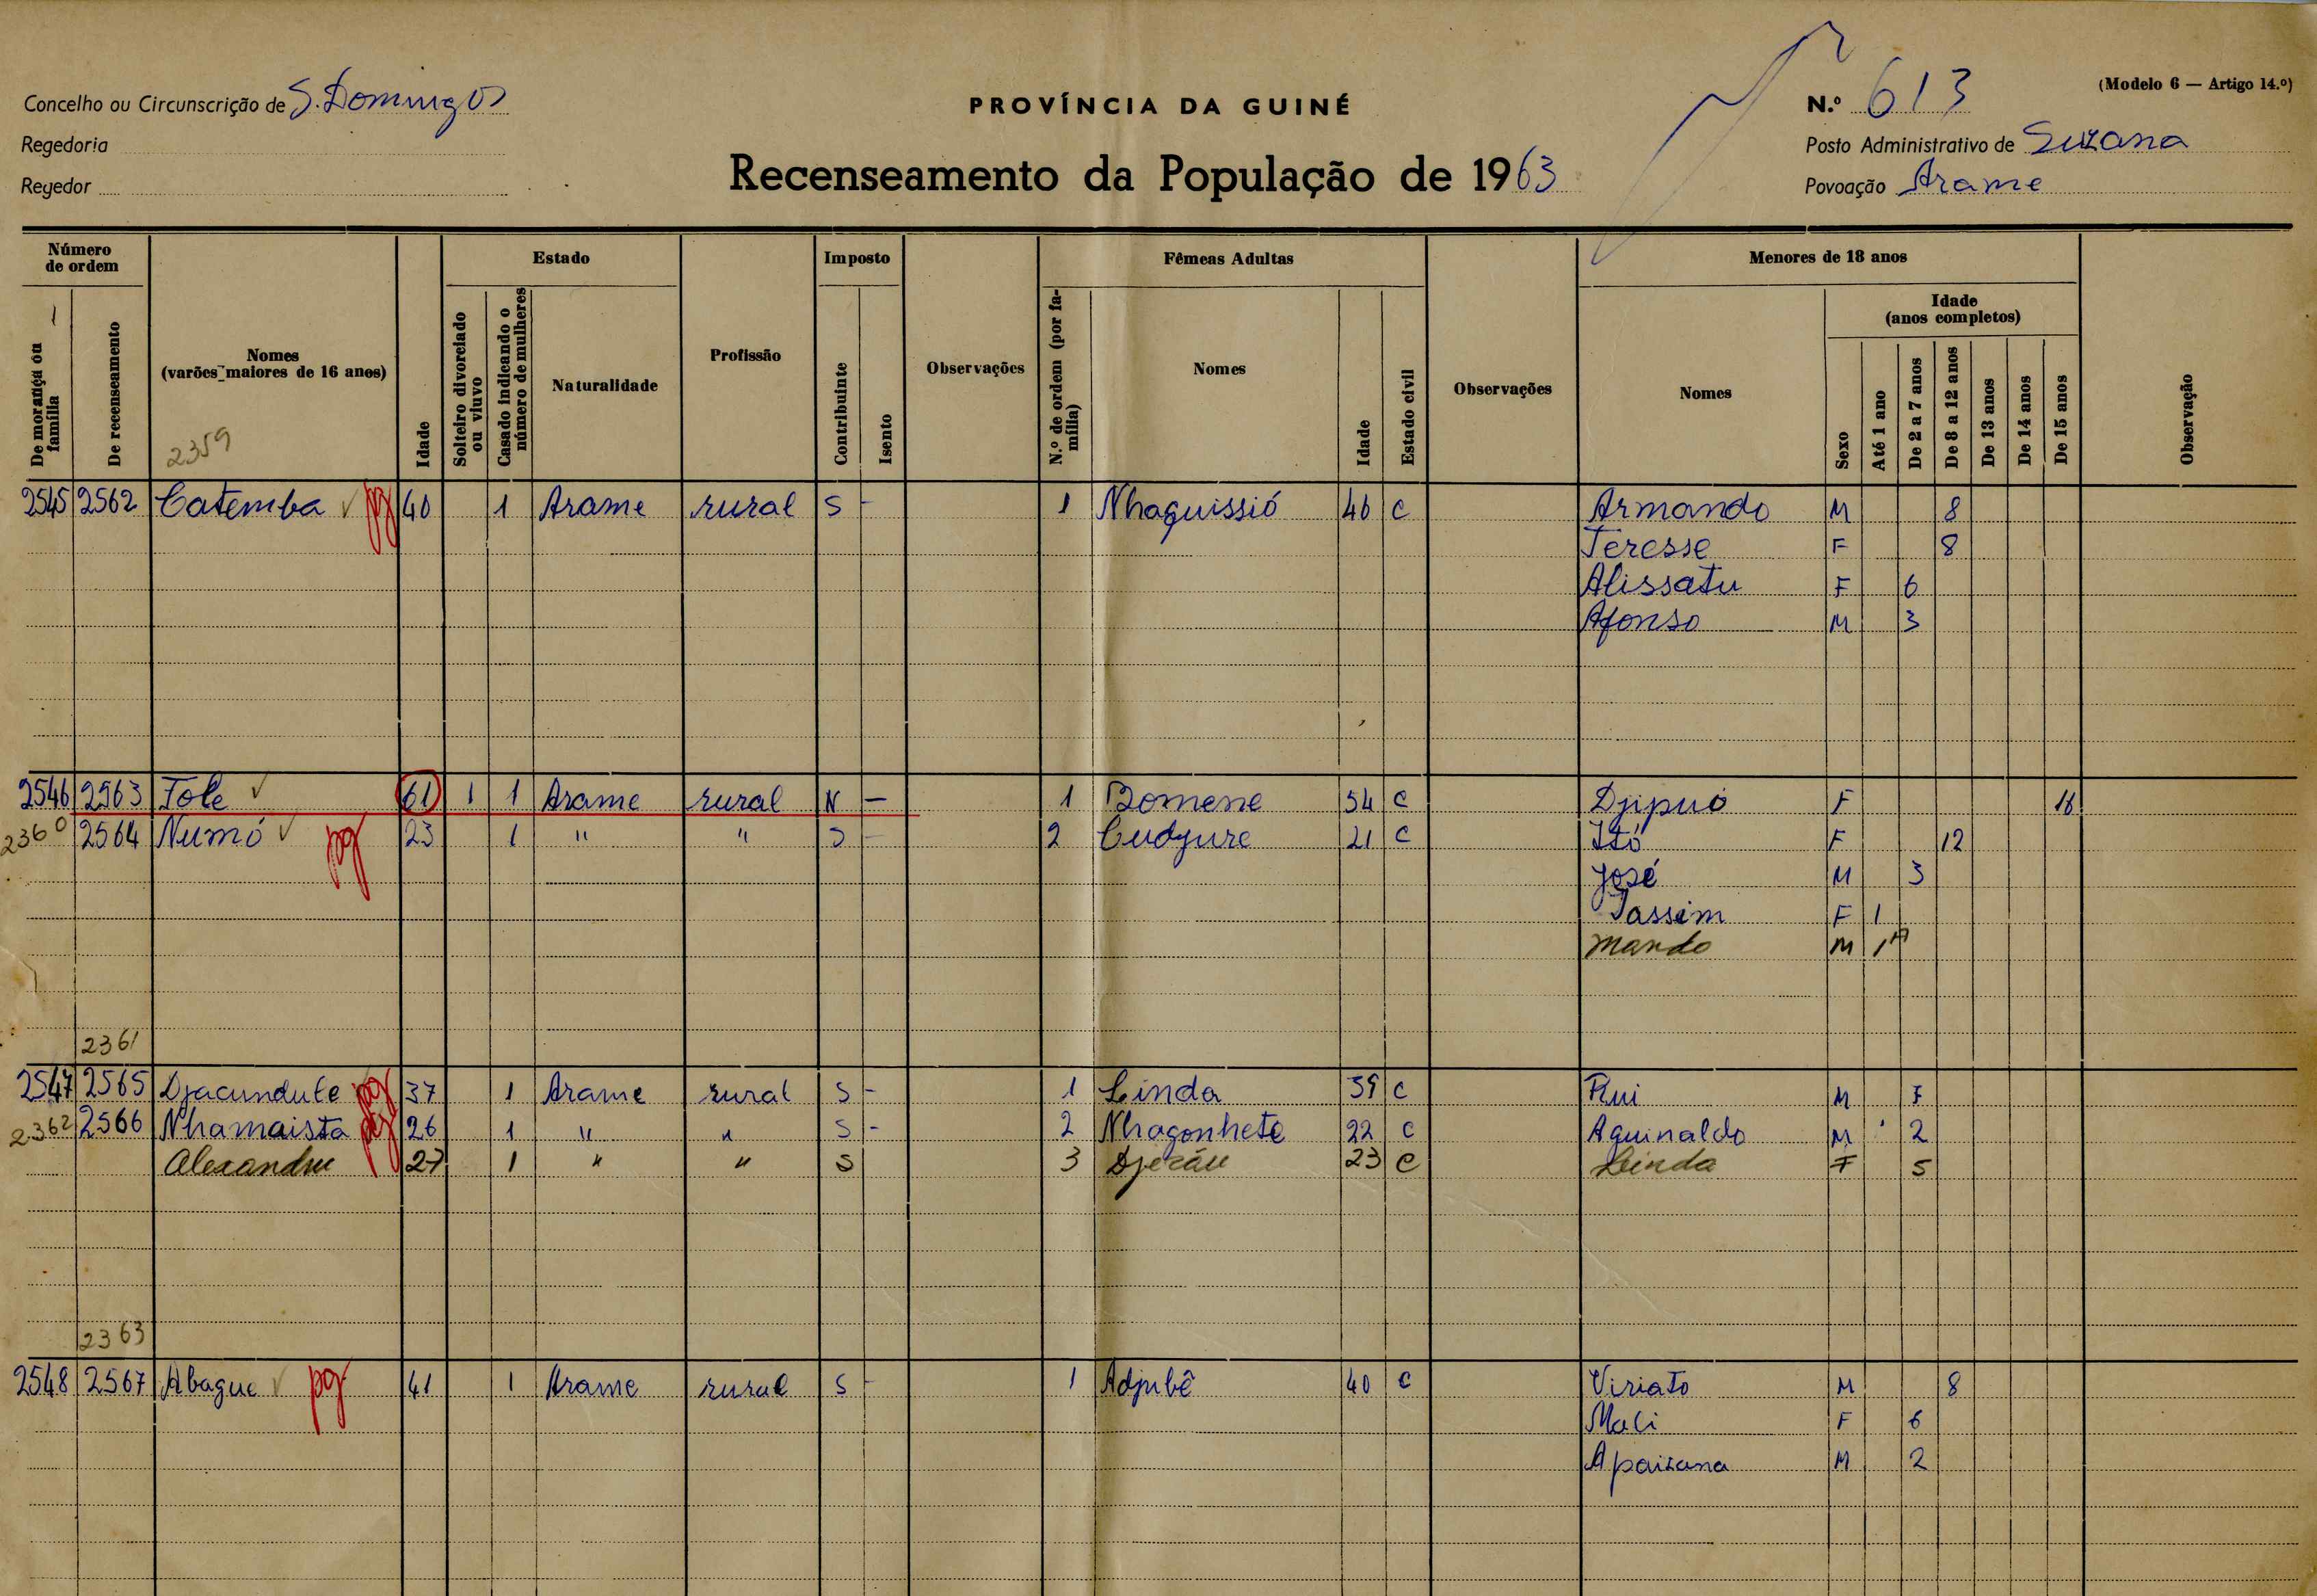 Concelho ou Circunscrição de S. Domingos
Regedoria
Regedor
PROVÍNCIA DA GUINÉ
Recenseamento da População de 1963
(Modelo 6 — Artigo 14.º)
N.º 613
Posto Administrativo de Suzana
Povoação Arame
Número de ordem
De morança ou família
De recenseamento
Nomes (varões maiores de 16 anos)
2359
Idade
Estado
Solteiro divorciado ou viuvo
Casado indicando o número de mulheres
Naturalidade
Profissão
Imposto
Contribuinte
Isento
Observações
Fêmeas Adultas
N.º de ordem (por família)
Nomes
Idade
Estado civil
Observações
Menores de 18 anos
Nomes
Sexo
Idade (anos completos)
Até 1 ano
De 2 a 7 anos
De 8 a 12 anos
De 13 anos
De 14 anos
De 15 anos
Observação
2545 2562 Catemba pg 40 1 Arame rural S - 1 Nhaquissió 40 C Armando M 8
Teresse F 8
Alissatu F 6
Afonso M 3
2546 2563 Tole 61 1 1 Arame rural N — 1 Bomene 54 C Djipuó F 16
2360 2564 Numó pg 23 1 " " S - 2 Cudjure 21 C Itó F 12
José M 3
Tassim F 1
Mando M 1A
2361
2547 2565 Djacundule pg 37 1 Arame rural S - 1 Linda 39 C Rui M 7
2362 2566 Nhamaista pg 26 1 " " S - 2 Nhagonhete 22 C Aguinaldo M 2
Alexandre 27 1 " " S 3 23 C Linda F 5
2363
2548 2567 Abague pg 41 1 Arame rural S - 1 Adjubê 40 C Viriato M 8
Mali F 6
Apaizana M 2